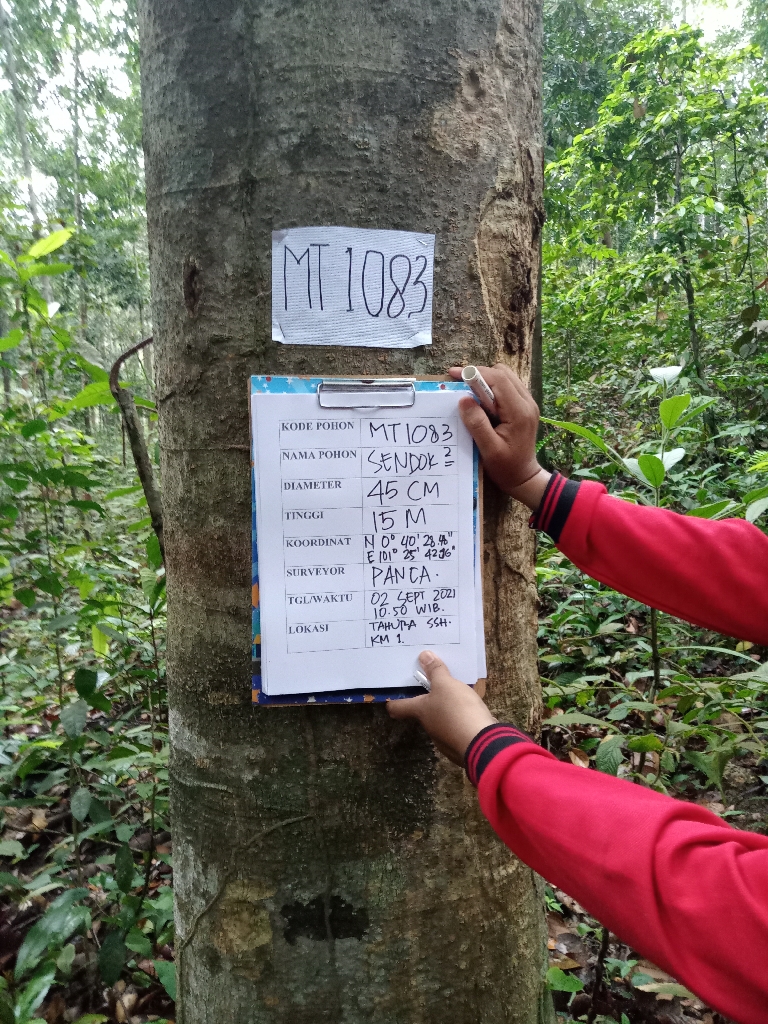 MT 1083
KODE POHON MT1083
NAMA POHON SENDOK 2
DIAMETER 45 CM
TINGGI 15 M
KOORDINAT N 0° 40' 28.48"
E 101° 25' 42.36"
SURVEYOR PANCA.
TGL/WAKTU 02 SEPT 2021
10.50 WIB.
LOKASI TAHURA SSH.
KM 1.